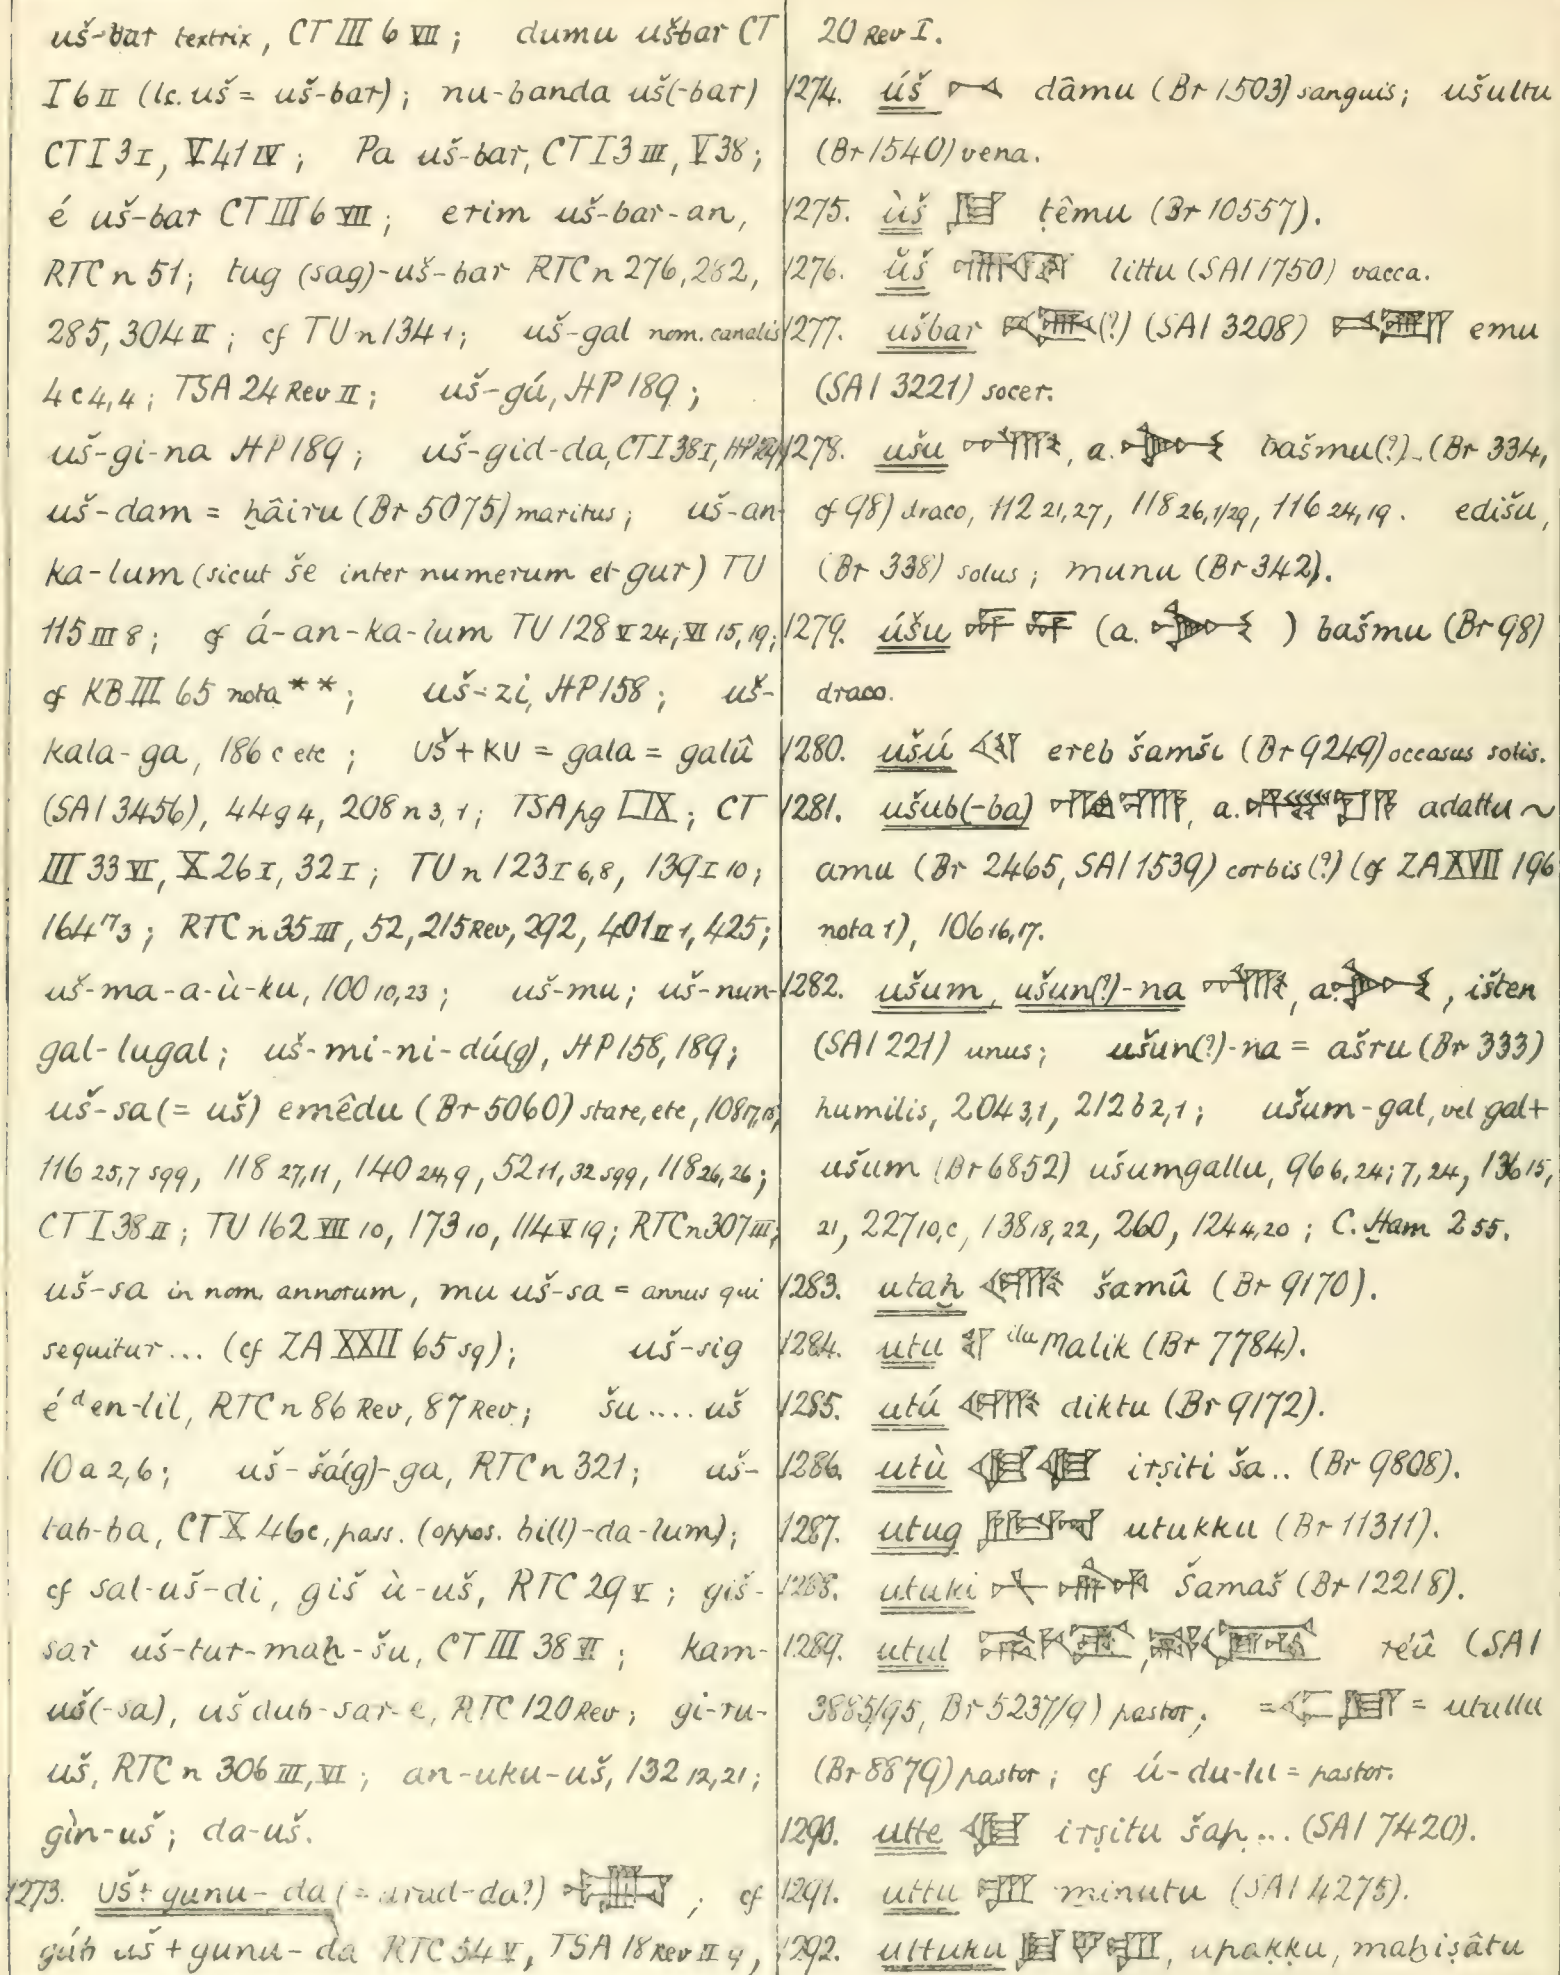 uš-bar textrix, CT III 6 VII; dumu ušbar CT
I 6 II (lc. uš = uš-bar); nu-banda uš(-bar)
CT I 3 I, V 41 IV; Pa uš-bar, CT I 3 III, V 38;
é uš-bar CT III 6 VII; erim uš-bar-an,
RTC n 51; tug (sag)-uš-bar RTC n 276, 282,
285, 304 II; cf TU n 134 1; uš-gal nom. canalis
4 c 4,4; TSA 24 Rev II; uš-gú, HP 189;
uš-gi-na HP 189; uš-gid-da, CT I 38 I,
uš-dam = ḫâiru (Br 5075) maritus; uš-an-
ka-lum (sicut še inter numerum et gur) TU
115 III 8; cf á-an-ka-lum TU 128 V 24, VI 15, 19;
cf KB III 65 nota **; uš-zi, HP 158; uš-
kala-ga, 186 c etc; uš+KU = gala = galû
(SAI 3456), 44 g 4, 208 n 3, 1; TSA pg LIX; CT
III 33 VI, X 26 I, 32 I; TU n 123 I 6,8, 139 I 10;
164 73; RTC n 35 III, 52, 215 Rev, 292, 401 II 1, 425;
uš-ma-a-ù-ku, 100 10,23; uš-mu; uš-nun-
gal-lugal; uš-mi-ni-dú(g), HP 158, 189;
uš-sa (= uš) emêdu (Br 5060) stare, etc,
116 25,7 sqq, 118 27,11, 140 24,9, 52 11, 32 sqq, 118 26,26;
CT I 38 II; TU 162 VII 10, 173 10, 114 V 19; RTC n 307 III;
uš-sa in nom. annorum, mu uš-sa = annus qui
sequitur... (cf ZA XXII 65 sq); uš-sig
é ᵈen-lil, RTC n 86 Rev, 87 Rev; šu .... uš
10 a 2,6; uš-šá(g)-ga, RTC n 321; uš-
tab-ba, CT X 46 c, pass. (oppos. bill)-da-lum);
cf sal-uš-di, giš ù-uš, RTC 29 V; giš-
sar uš-tur-maḫ-šu, CT III 38 II; kam-
uš(-sa), uš dub-sar-e, RTC 120 Rev; gi-ru-
uš, RTC n 306 III, VI; an-uku-uš, 132 12,21;
gìn-uš; da-uš.
1273. uš+gunu-da (= arad-da?) ; cf
gúb uš+gunu-da RTC 54 V, TSA 18 Rev II 4,
20 Rev I.
1274. úš dâmu (Br 1503) sanguis; ušultu
(Br 1540) vena.
1275. ùš ṭêmu (Br 10557).
1276. ŭš littu (SAI 1750) vacca.
1277. ušbar (?) (SAI 3208) emu
(SAI 3221) socer.
1278. ušu , a. bašmu(?) (Br 334,
cf 98) draco, 112 21,27, 118 26,1/29, 116 24,19. edišu,
(Br 338) solus; munu (Br 342).
1279. úšu (a. ) bašmu (Br 98)
draco.
1280. ušú ereb šamši (Br 9249) occasus solis.
1281. ušub(-ba) , a. adattu ~
amu (Br 2465, SAI 1539) corbis(?) (cf ZA XVII 196
nota 1), 106 16,17.
1282. ušum, ušun(?)-na , a. , išten
(SAI 221) unus; ušun(?)-na = ašru (Br 333)
humilis, 204 3,1, 212 b 2,1; ušum-gal, vel gal+
ušum (Br 6852) ušumgallu, 96 6,24; 7,24, 136 15,
21, 227 10,c, 138 18,22, 260, 124 4,20; C. Ḫam 2 55.
1283. utaḫ šamû (Br 9170).
1284. utu ilu Malik (Br 7784).
1285. utú diktu (Br 9172).
1286. utù irṣiti ša.. (Br 9808).
1287. utug utukku (Br 11311).
1288. utuki Šamaš (Br 12218).
1289. utul , rê'û (SAI
3885/95, Br 5237/9) pastor; = = utullu
(Br 8879) pastor; cf ú-du-lul = pastor.
1290. utte irṣitu šap... (SAI 7420).
1291. uttu minutu (SAI 4275).
1292. uttuku , upaḳḳu, maḫiṣâtu